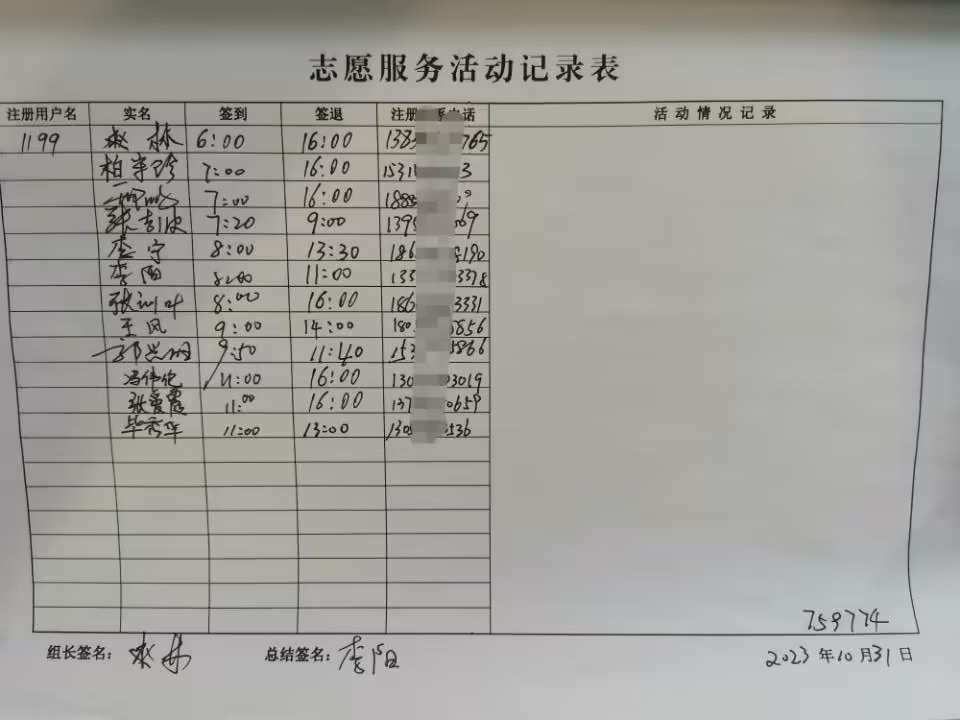 志愿服务活动记录表
注册用户名 实名 签到 签退 注册 系电话 活动情况记录
1199 林 6:00 16:00 138 765
柏 7:00 16:00 1531 3
7:00 16:00 188
张 7:20 9:00 139 69
李宁 8:00 13:30 186 190
李阳 8:00 11:00 133 3378
张 叶 8:00 16:00 186 3331
王风 9:00 14:00 180 8856
郭 9:50 11:40 153 5866
冯伟伦 11:00 16:00 130 03019
张爱霞 11:00 16:00 137 0659
毕秀华 11:00 13:00 130 0536
759774
组长签名: 林 总结签名: 李阳 2023年10月31日